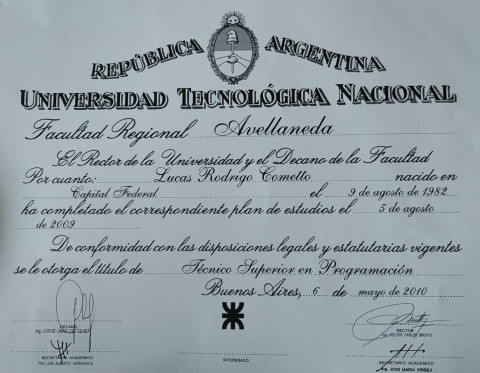 REPÚBLICA ARGENTINA
UNIVERSIDAD TECNOLÓGICA NACIONAL
Facultad Regional Avellaneda
El Rector de la Universidad y el Decano de la Facultad
Por cuanto: Lucas Rodrigo Cometto nacido en
Capital Federal el 9 de agosto de 1982
ha completado el correspondiente plan de estudios el 5 de agosto
de 2009
De conformidad con las disposiciones legales y estatutarias vigentes
se le otorga el título de Técnico Superior en Programación
Buenos Aires, 6 de mayo de 2010
DECANO
Ing. JORGE OMAR DEL GENER
RECTOR
Ing. HÉCTOR CARLOS BROTTO
SECRETARIO ACADÉMICO
INTERESADO
SECRETARIO ACADÉMICO
Ing. JOSÉ MARÍA VIRGILI